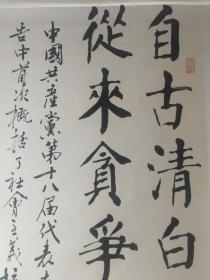 自古清白
從來貪爭
中國共產黨第十八届代表
告中首次概括了社會主義